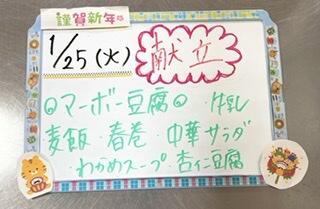 謹賀新年
1/25(火) 献立
◎マーボー豆腐◎ ・牛乳
麦飯・春巻・中華サラダ
・わかめスープ・杏仁豆腐